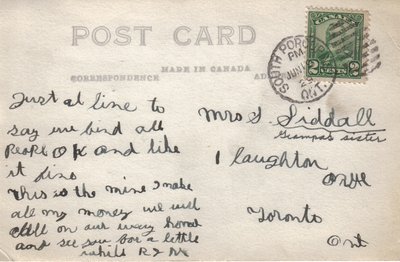 POST CARD
CORRESPONDENCE
MADE IN CANADA
AD
CANADA
2 CENTS 2
SOUTH PORC
PM
JUN
29
ONT.
Just al line to
say we find all
People OK and like
it fine
This is the mine I make
all my money we will
call on our way home
and see you for a little
while R & M
Mrs S Siddall
Grampas sister
1 laughton
ave
Toronto
Ont